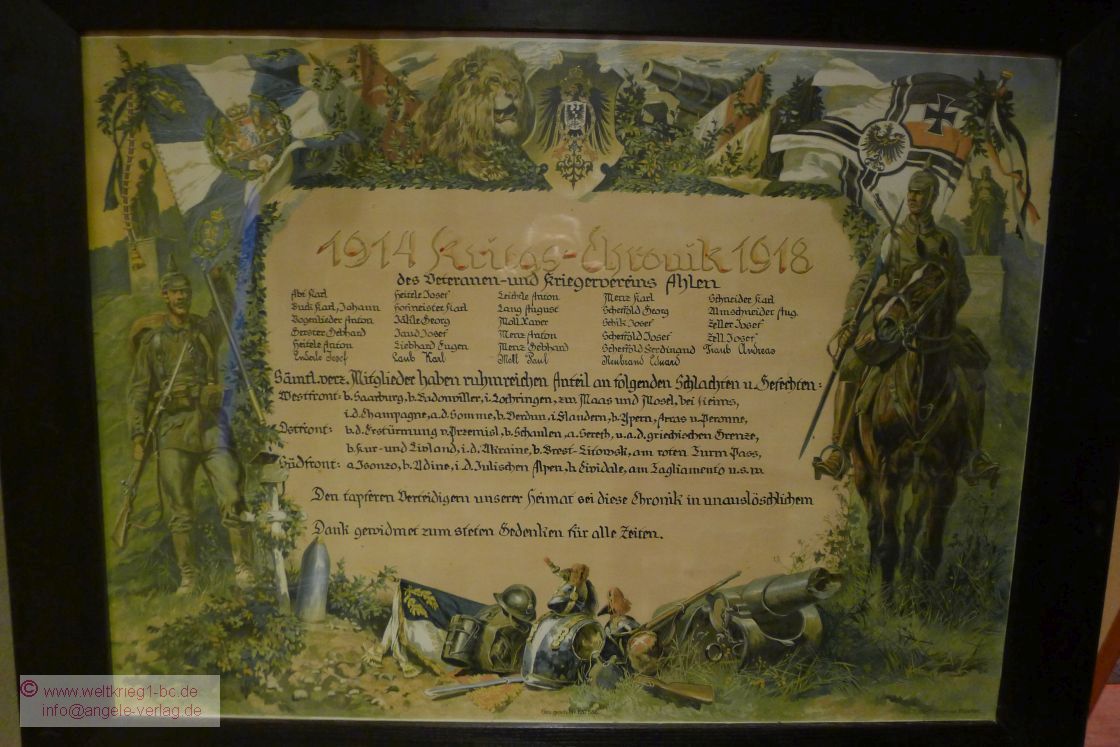 1914 Kriegs-Chronik 1918
des Veteranen-und Kriegervereins Ahlen
Abt Karl Heitele Josef Leichtle Anton Menz Karl Schneider Karl
Buck Karl, Johann Hofmeister Karl Lang August Scheffold Georg Almschneider Aug.
Bogenrieder Anton Jäkle Georg Moll Xaver Schik Josef Zeller Josef
Gerster Gebhard Jaud Josef Menz Anton Scheffold Josef Zell Josef
Heitele Anton Liebhard Eugen Menz Gebhard Scheffold Ferdinand Traub Andreas
Enderle Josef Laub Karl Moll Paul Neubrand Eduard
Sämtl. verz. Mitglieder haben ruhmreichen Anteil an folgenden Schlachten u. Gefechten:
Westfront: b. Saarburg, b. Badonviller, i. Lothringen, zw. Maas und Mosel, bei Reims,
i. d. Champagne, a. d. Somme, b. Verdun, i. Flandern, b. Ypern, Arras u. Peronne,
Ostfront: b. d. Erstürmung v. Przemisl, b. Schaulen, a. Sereth, u. a. d. griechischen Grenze,
b. Kur- und Livland, i. d. Ukraine, b. Brest-Litowsk, am roten Turm-Pass,
Südfront: a. Isonzo, b. Udine, i. d. Julischen Alpen, b. Cividale, am Tagliamento u. s. w.
Den tapferen Verteidigern unserer Heimat sei diese Chronik in unauslöschlichem
Dank gewidmet zum steten Gedenken für alle Zeiten.
© www.weltkrieg1-bc.de
info@angele-verlag.de